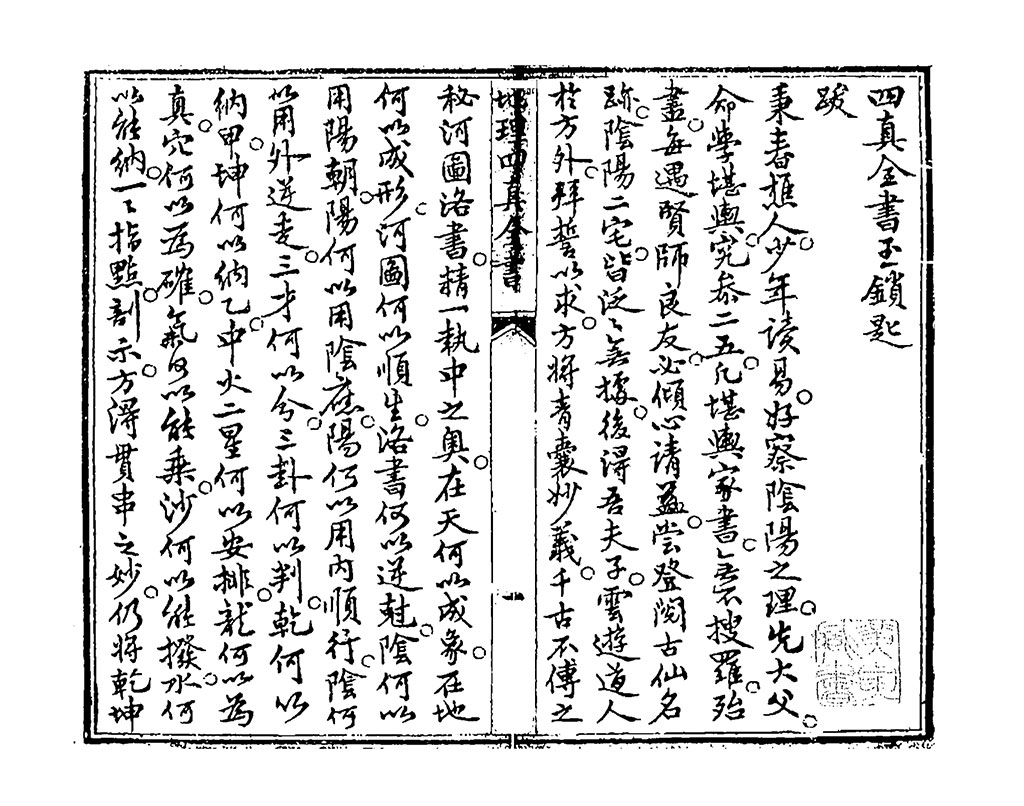 四真全書玉鎖匙
跋
秉春樵人少年读易好察陰陽之理先大父
命學堪輿究叅二五凡堪輿家書無不搜羅殆
盡每遇賢師良友必傾心請益嘗登閱古仙名
跡陰陽二宅皆泛泛無據後得吾夫子雲遊道人
於方外拜誓以求方將青囊妙義千古不傳之
地理四真全書
秘河圖洛書精一執中之奥在天何以成象在地
何以成形河圖何以順生洛書何以逆尅陰何以
用陽朝陽何以用陰應陽何以用内順行陰何
以用外逆走三才何以分三卦何以判乾何以
納甲坤何以納乙中火二星何以安排龍何以為
真穴何以為確氣何以能乗沙何以能撥水何
以能納一一指點剖示方得貫串之妙仍將乾坤